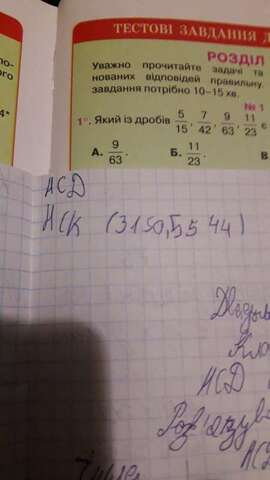 ТЕСТОВІ ЗАВДАННЯ Д
РОЗДІЛ
Уважно прочитайте задачі та
нованих відповідей правильну
завдання потрібно 10–15 хв.
№ 1
1°. Який із дробів 5/15, 7/42, 9/63, 11/23 є
А. 9/63. Б. 11/23. В
по-
ого
4*
НСD
НСК (3150, 5544)
НСD
Роз'язува